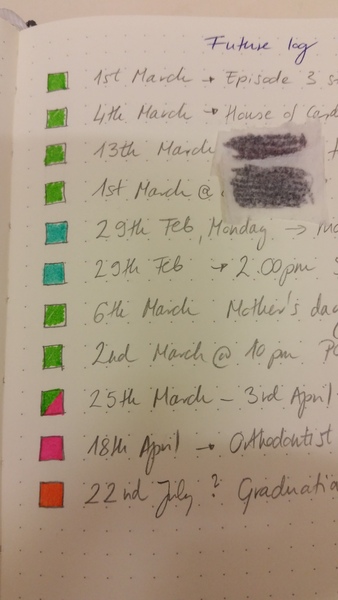 Future log
1st March → Episode 3
4th March → House of Card
13th March
1st March @
29th Feb, Monday →
29th Feb → 2.00pm
6th March Mother's day
2nd March @ 10pm
25th March – 3rd April
18th April → Orthodontist
22nd July ? Graduatio